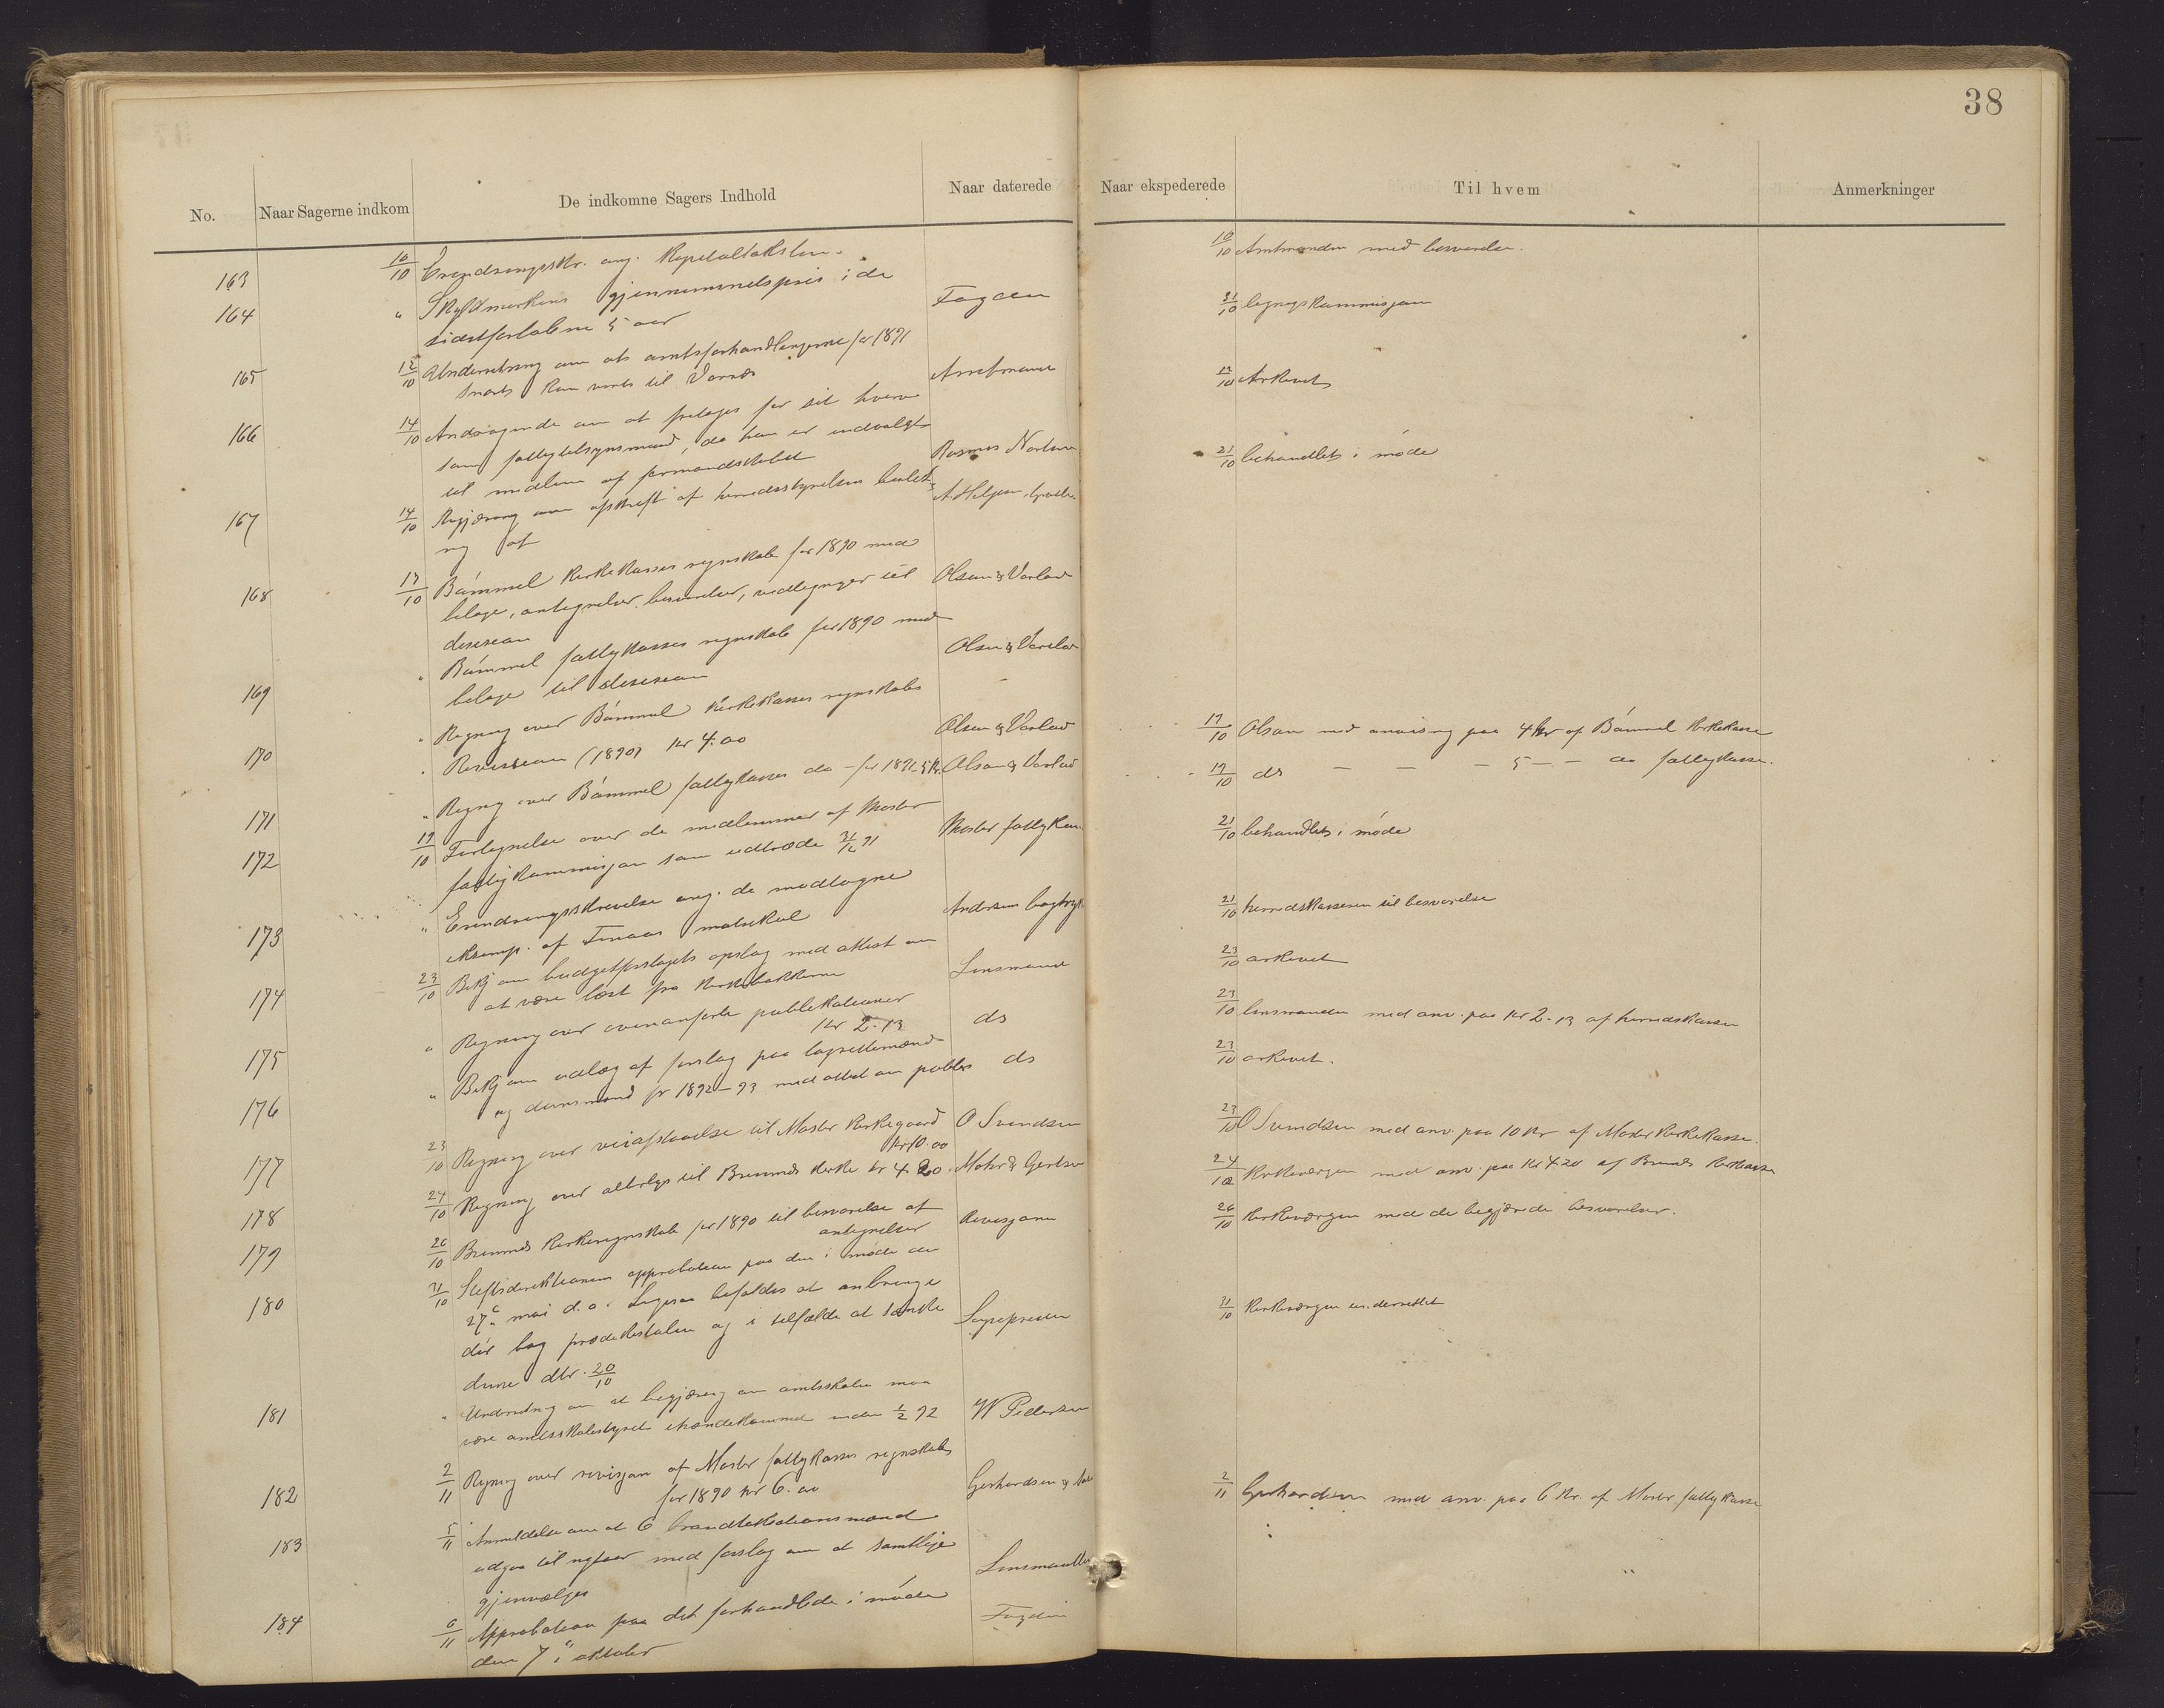 38
No.
Naar Sagerne indkom
De indkomne Sagers Indhold
Naar daterede
Naar ekspederede
Til hvem
Anmerkninger
163 10/10 Erindringsskr. ang. Kapitaltaksten. 10/10 Amtmanden med besvarelse.
164 " Skyldmarkens gjennemsnitspris i de Fogden 31/10 legningskommissjonen
sidstforløbne 5 aar
165 12/10 Underretning om at amtsforhandlingerne for 1891 Amtmanden 12/10 Arkivet
snart kan ventes til
166 14/10 Andragende om at fritages for sit hverv Rasmus 21/10 behandlet i møde
som fattigtilsynsmand, da han er indvalgt
til medlem af formandskabet
167 14/10 Begjæring om afskrift af herredsstyrelsens
168 17/10 Bømmel Kirkekasses regnskab for 1890 med Olsen & Vorland
bilage, antegnelser, besvarelser, til
desision
169 " Bømmel fattigkasses regnskab for 1890 med Olsen & Vorland
bilage til desision
170 " Regning over Bømmel Kirkekasses regnskabs Olsen & Vorland 17/10 Olsen med anvisning paa 4 kr af Bømmel Kirkekasse
Revission (1890) kr 4.00
171 " Regning over Bømmel fattigkasses do - for 1891 - 5 kr. Olsen & Vorland 17/10 do — — — 5 — — do fattigkasse.
172 19/10 Fortegnelse over de medlemmer af Moster Moster fattigkom. 21/10 behandlet i møde
fattigkommisjon som udtræde 31/12 91
173 " Erindringsskrivelse ang. de modtagne Andersen bogtryk. 21/10 herredskasseren til besvarelse
eksemp. af Finaas matrikul
174 23/10 Bekj om budgetforslagets opslag med attest om Lensmand 23/10 arkivet
at være læst fra Kirkebakkerne
175 " Regning over ovenanførte publikationer do 23/10 lensmanden med anv. paa kr 2.13 af herredskassen
kr 2.13
176 " Bekj om udlæg af forslag paa lagrettemænd do 23/10 arkivet.
og domsmænd for 1892-93 med attest om publis
177 23/10 Regning over veiafstaaelse til Moster Kirkegaard O Svendsen 23/10 O Svendsen med anv. paa 10 kr af Moster Kirkekasse.
kr 10.00
178 24/10 Regning over alterlys til Bremnes Kirke kr 4.20. 24/10 Kirkeværgen med anv. paa kr 4.20 af Bremnes Kirkekasse
179 26/10 Bremnes Kirkeregnskab for 1890 til besvarelse af Revisjonen 26/10 Kirkeværgen med de begjærede besvarelser.
antegnelser
180 31/10 Stiftsdirektionens approbation paa den i møde den 31/10 Kirkeværgen underrettet
27de mai d.a. befaldes at anbringe Sognepresten
dør bag prædikestolen og i tilfælde at
denne dtr. 20/10
181 " Underretning om at begjæring om amtsskolen maa W Pedersen
være amtsskolestyret ihændekommet inden 1/2 92
182 2/11 Regning over revisjon af Moster fattigkasses regnskab Gerhardsen & 2/11 Gerhardsen med anv. paa 6 kr. af Moster fattigkasse
for 1890 kr 6.00
183 5/11 Anmeldelse om at 6 brandtakstionsmænd Lensmanden
udgaa til nytaar med forslag om at samtlige
gjenvælges
184 6/11 Approbation paa det forhandlede i møde Fogden
den 7de oktober